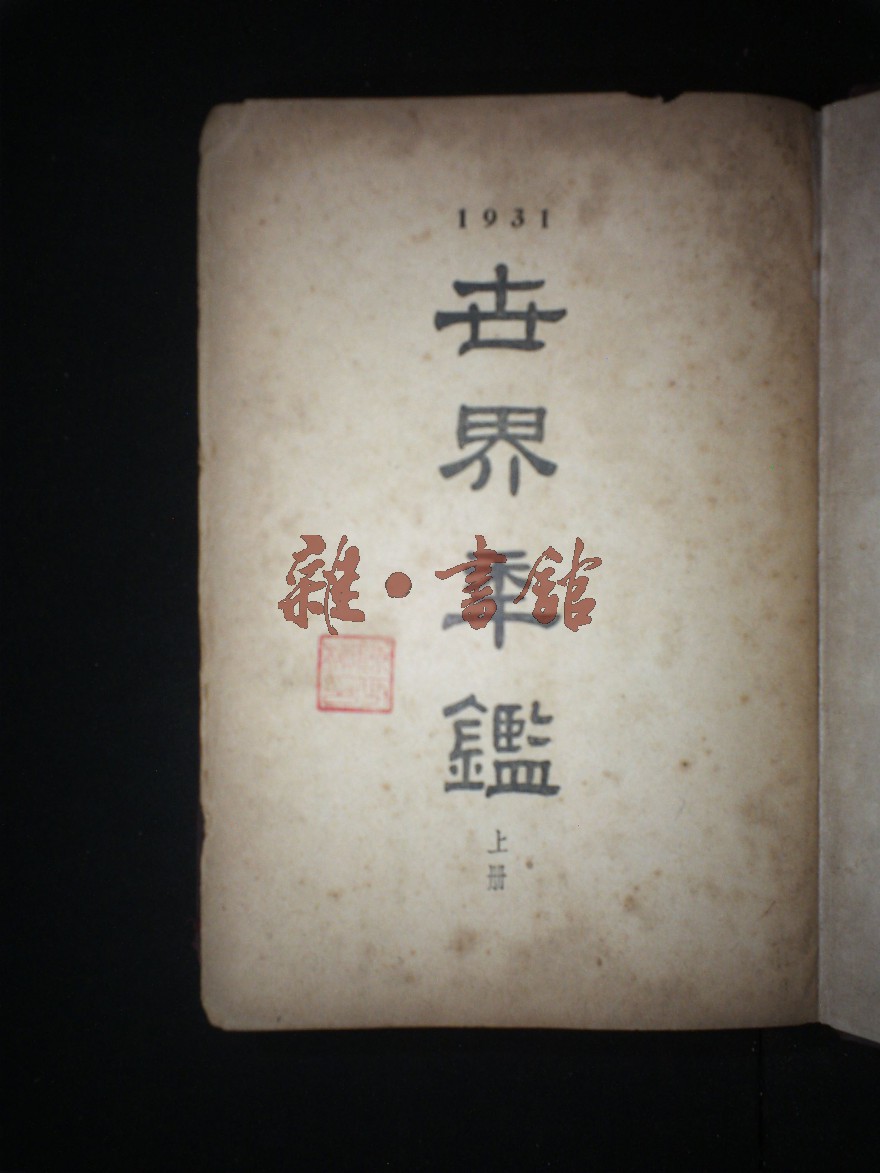 1931
世界年鑑
上册
雜·書館